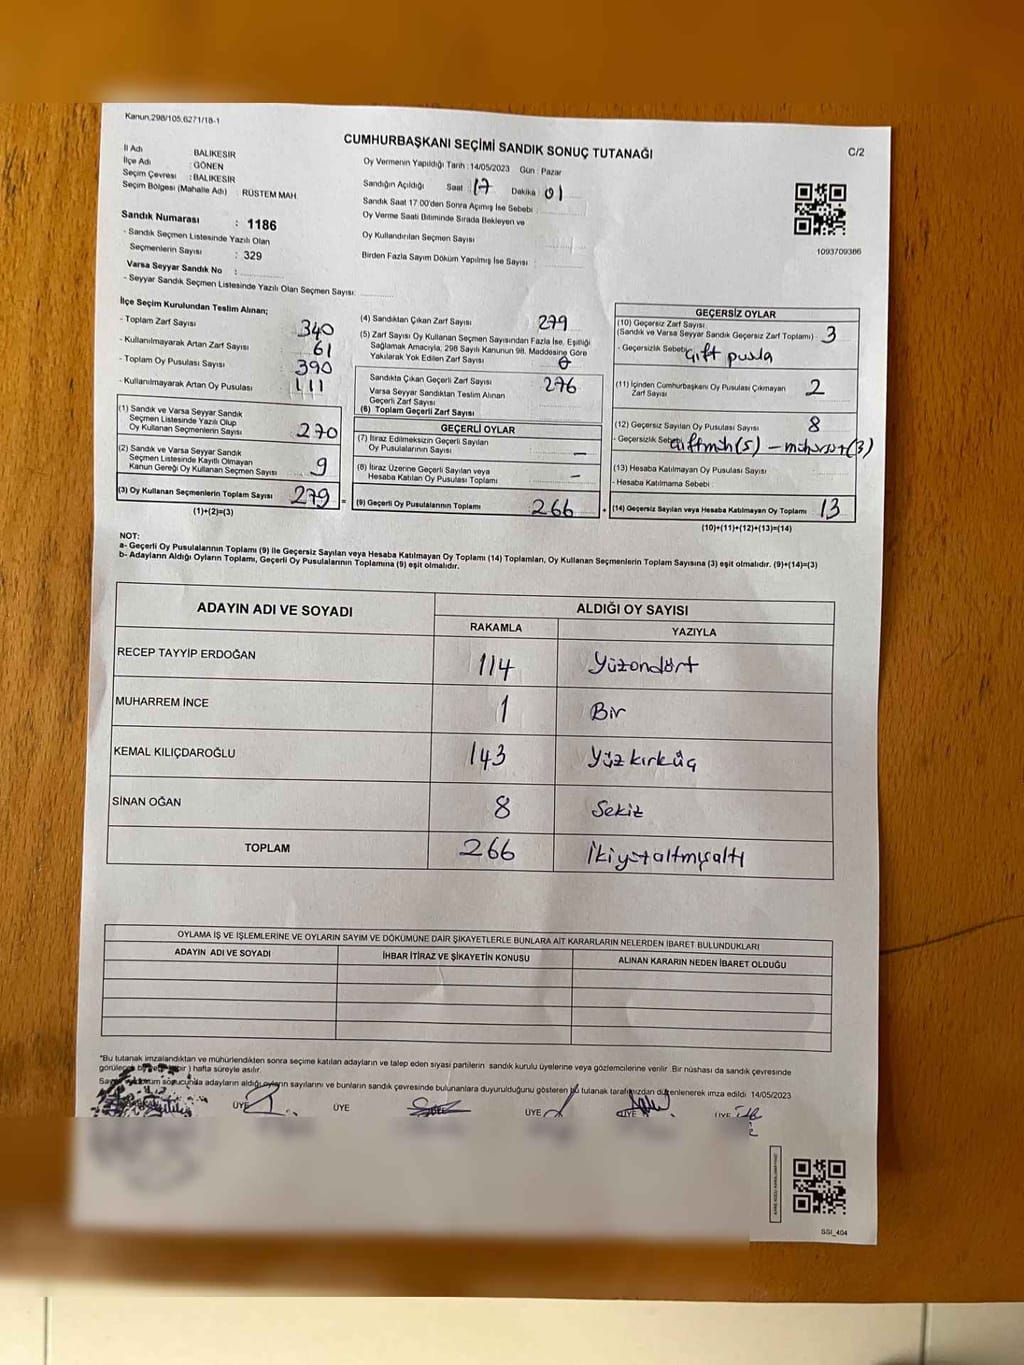 Kanun.298/105.6271/18-1
CUMHURBAŞKANI SEÇİMİ SANDIK SONUÇ TUTANAĞI
C/2
İl Adı : BALIKESİR
İlçe Adı : GÖNEN
Seçim Çevresi : BALIKESİR
Seçim Bölgesi (Mahalle Adı) : RÜSTEM MAH
Sandık Numarası : 1186
- Sandık Seçmen Listesinde Yazılı Olan
Seçmenlerin Sayısı : 329
Varsa Seyyar Sandık No :
- Seyyar Sandık Seçmen Listesinde Yazılı Olan Seçmen Sayısı:
Oy Vermenin Yapıldığı Tarih : 14/05/2023 Gün : Pazar
Sandığın Açıldığı Saat : 17 Dakika : 01
Sandık Saat 17:00'den Sonra Açımış İse Sebebi :
Oy Verme Saati Bitiminde Sırada Bekleyen ve
Oy Kullandırılan Seçmen Sayısı
Birden Fazla Sayım Döküm Yapılmış İse Sayısı :
1093709386
İlçe Seçim Kurulundan Teslim Alınan;
- Toplam Zarf Sayısı 340
- Kullanılmayarak Artan Zarf Sayısı 61
- Toplam Oy Pusulası Sayısı 390
- Kullanılmayarak Artan Oy Pusulası 111
(1) Sandık ve Varsa Seyyar Sandık
Seçmen Listesinde Yazılı Olup
Oy Kullanan Seçmenlerin Sayısı 270
(2) Sandık ve Varsa Seyyar Sandık
Seçmen Listesinde Kayıtlı Olmayan
Kanun Gereği Oy Kullanan Seçmen Sayısı 9
(3) Oy Kullanan Seçmenlerin Toplam Sayısı 279 =
(1)+(2)=(3)
(4) Sandıktan Çıkan Zarf Sayısı 279
(5) Zarf Sayısı Oy Kullanan Seçmen Sayısından Fazla İse, Eşitliği
Sağlamak Amacıyla, 298 Sayılı Kanunun 98. Maddesine Göre
Yakılarak Yok Edilen Zarf Sayısı
Sandıkta Çıkan Geçerli Zarf Sayısı 276
Varsa Seyyar Sandıktan Teslim Alınan
Geçerli Zarf Sayısı
(6) Toplam Geçerli Zarf Sayısı
GEÇERLİ OYLAR
(7) İtiraz Edilmeksizin Geçerli Sayılan
Oy Pusulasının Sayısı –
(8) İtiraz Üzerine Geçerli Sayılan veya
Hesaba Katılan Oy Pusulası Toplamı –
(9) Geçerli Oy Pusulalarının Toplamı 266 +
GEÇERSİZ OYLAR
(10) Geçersiz Zarf Sayısı
(Sandık ve Varsa Seyyar Sandık Geçersiz Zarf Toplamı) 3
- Geçersizlik Sebebi: çift pusla
(11) İçinden Cumhurbaşkanı Oy Pusulası Çıkmayan
Zarf Sayısı 2
(12) Geçersiz Sayılan Oy Pusulası Sayısı 8
- Geçersizlik Sebebi: çiftmüh(5) – mühürsüz(3)
(13) Hesaba Katılmayan Oy Pusulası Sayısı
- Hesaba Katılmama Sebebi :
(14) Geçersiz Sayılan veya Hesaba Katılmayan Oy Toplamı 13
(10)+(11)+(12)+(13)=(14)
NOT:
a- Geçerli Oy Pusulalarının Toplamı (9) ile Geçersiz Sayılan veya Hesaba Katılmayan Oy Toplamı (14) Toplamları, Oy Kullanan Seçmenlerin Toplam Sayısına (3) eşit olmalıdır. (9)+(14)=(3)
b- Adayların Aldığı Oyların Toplamı, Geçerli Oy Pusulalarının Toplamına (9) eşit olmalıdır.
ADAYIN ADI VE SOYADI ALDIĞI OY SAYISI
RAKAMLA YAZIYLA
RECEP TAYYİP ERDOĞAN 114 Yüzondört
MUHARREM İNCE 1 Bir
KEMAL KILIÇDAROĞLU 143 Yüzkırküç
SİNAN OĞAN 8 Sekiz
TOPLAM 266 İkiyüzaltmışaltı
OYLAMA İŞ VE İŞLEMLERİNE VE OYLARIN SAYIM VE DÖKÜMÜNE DAİR ŞİKAYETLERLE BUNLARA AİT KARARLARIN NELERDEN İBARET BULUNDUKLARI
ADAYIN ADI VE SOYADI İHBAR İTİRAZ VE ŞİKAYETİN KONUSU ALINAN KARARIN NEDEN İBARET OLDUĞU
*Bu tutanak imzalandıktan ve mühürlendikten sonra seçime katılan adayların ve talep eden siyasi partilerin sandık kurulu üyelerine veya gözlemcilerine verilir. Bir nüshası da sandık çevresinde
görülecek bir yere hafta süreyle asılır.
Sayım sonucunda adayların aldığı oyların sayılarını ve bunların sandık çevresinde bulunanlara duyurulduğunu gösteren bu tutanak tarafımızdan düzenlenerek imza edildi. 14/05/2023
ÜYE ÜYE ÜYE ÜYE ÜYE
SSI_404